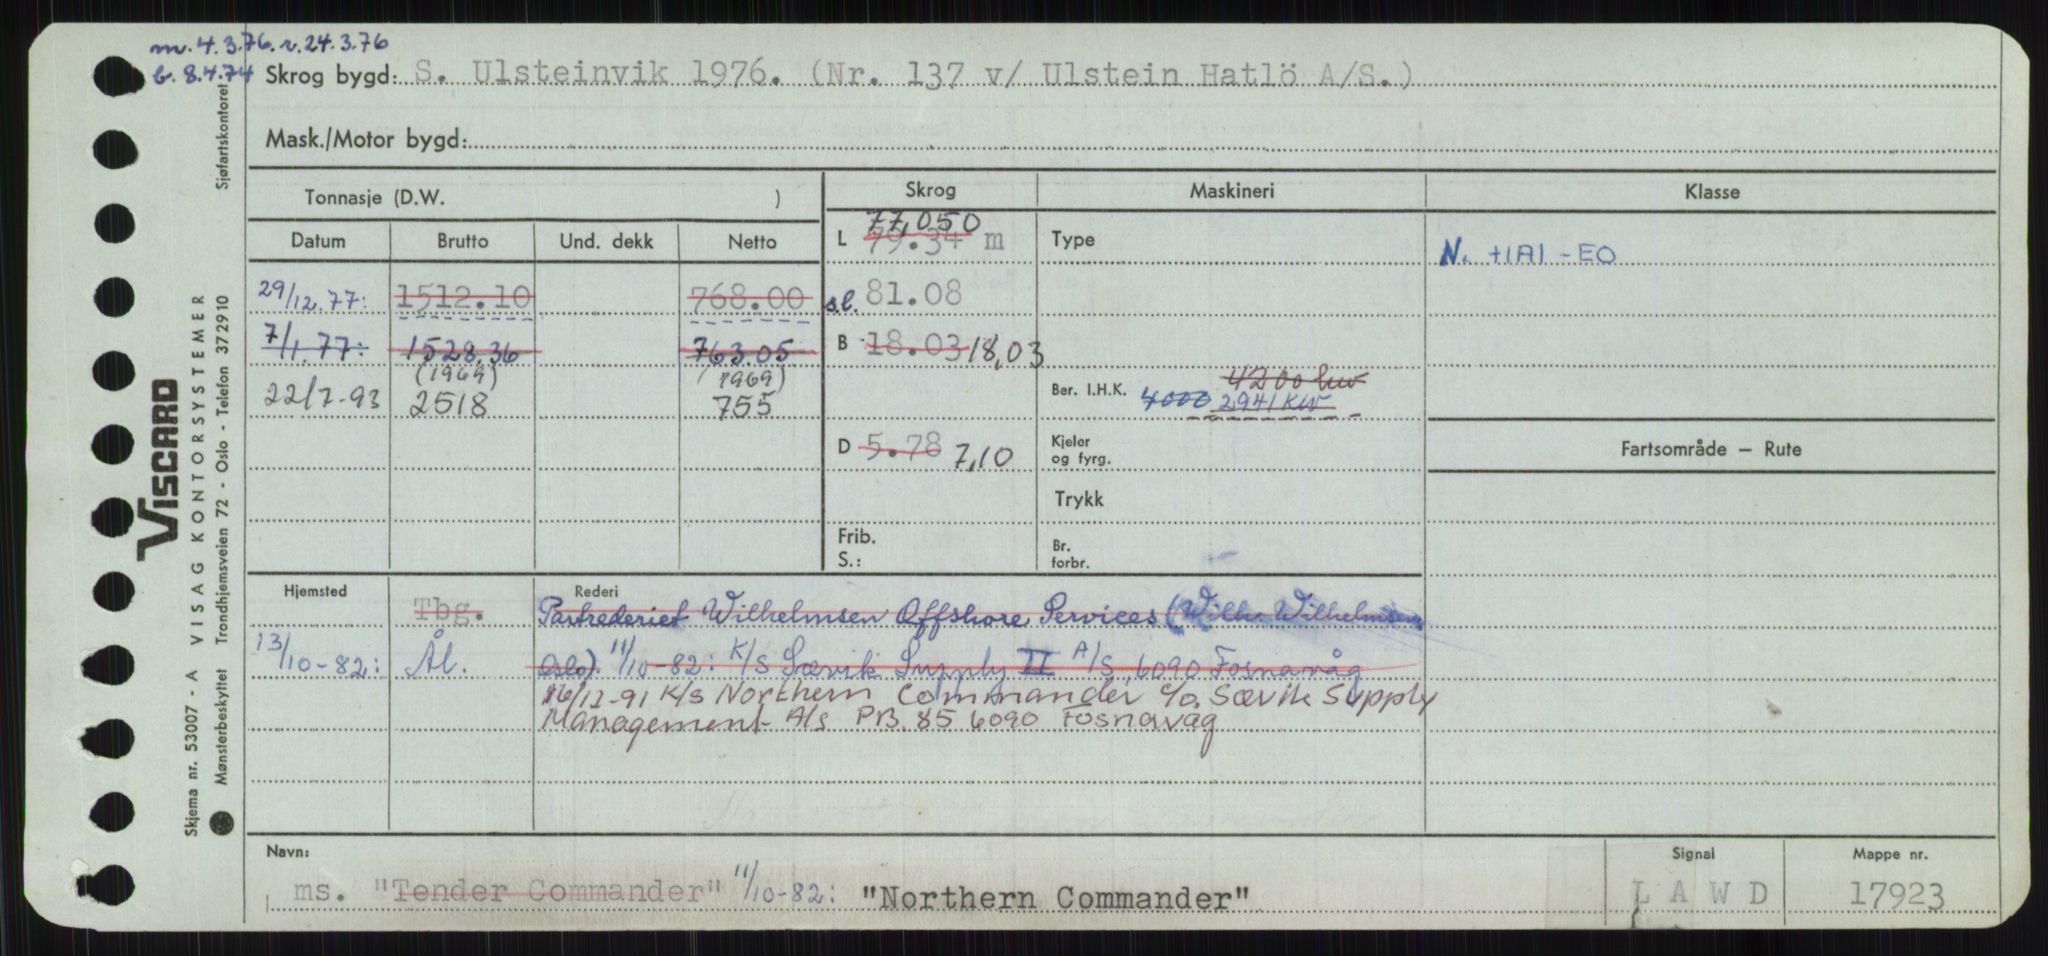 m. 4.3.76. r. 24.3.76
b. 8.4.74 Skrog bygd: S. Ulsteinvik 1976. (Nr. 137 v/ Ulstein Hatlö A/S.)
Mask./Motor bygd:
Tonnasje (D.W. )
Skrog
Maskineri
Klasse
Datum Brutto Und. dekk Netto
29/12.77: 1512.10 768.00
7/1.77: 1528.36 763.05
(1969) (1969)
22/7-93 2518 755
77,050
L 79.34 m
s.l. 81.08
B 18.03 18,03
D 5.78 7,10
Frib.
S.:
Type
4200 
Ber. I.H.K. 4000 2941 KW
Kjeler
og fyrg.
Trykk
Br.
forbr.
N. +1A1 - EO
Fartsområde – Rute
Hjemsted
Rederi
Tbg. Partrederiet Wilhelmsen Offshore Services (Wilh. Wilhelmsen
13/10-82: Ål. Oslo). 11/10-82: K/S Sævik Supply II A/S, 6090 Fosnavåg
16/12-91 K/S Northern Commander c/o. Sævik Supply
Management A/s PB. 85 6090 Fosnavåg
Navn:
ms. "Tender Commander" 11/10-82: "Northern Commander"
Signal
L A W D
Mappe nr.
17923
VISCARD
Skjema nr. 53007 - A VISAG KONTORSYSTEMER
Mønsterbeskyttet Trondhjemsveien 72 - Oslo - Telefon 372910
Sjøfartskontoret